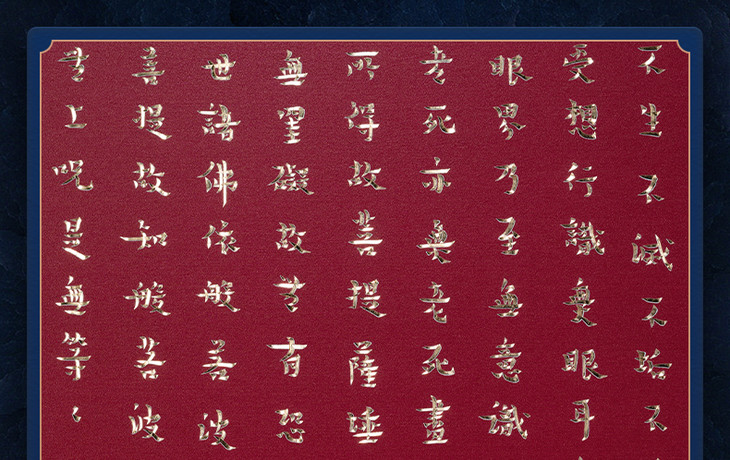 不生不滅不垢不
受想行識無眼耳
眼界乃至無意識
老死亦無老死盡
所得故菩提薩埵
無罣礙故無有恐
世諸佛依般若波
菩提故知般若波
無上呪是無等、